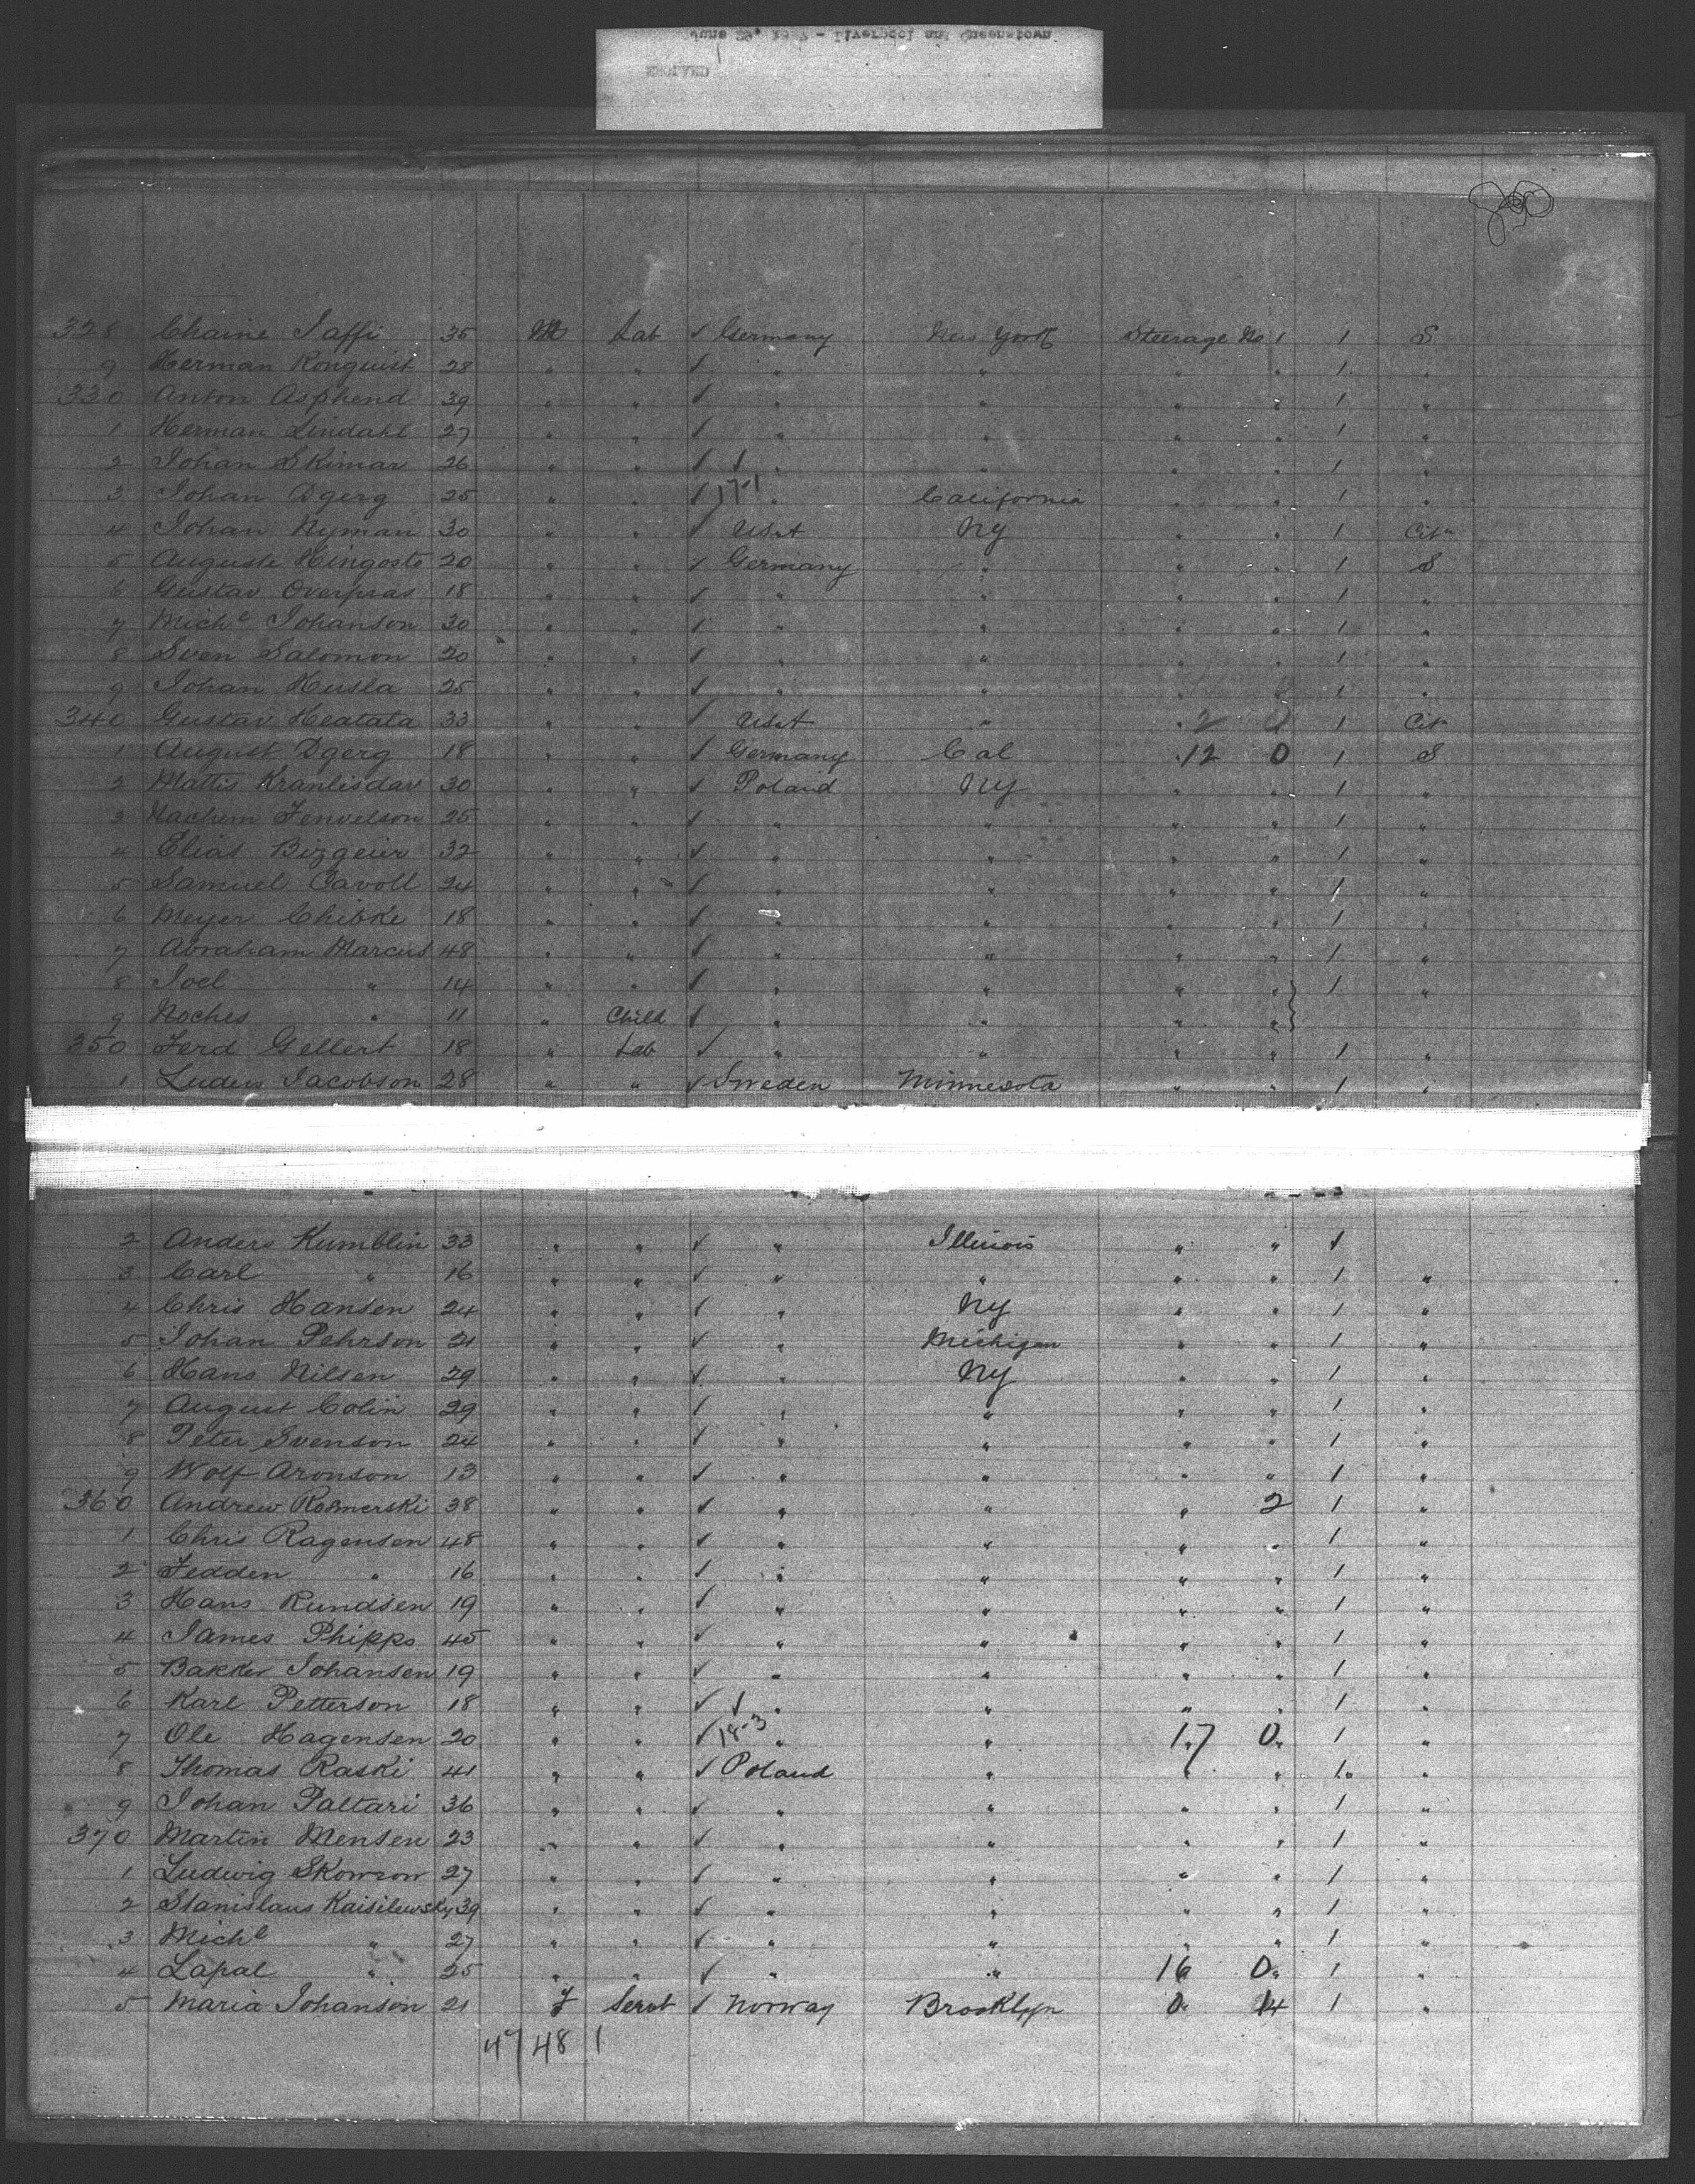 June 23d 1887 - Liverpool and Queenstown
RECEIVED
328 Chaine Jaffi 35 M Lab ✓ Germany New York Steerage No 1 1 S
9 Herman Ronquist 28 " " ✓ " " " " 1 "
330 Anton Asphend 39 " " ✓ " " " " 1 "
1 Herman Lindahl 27 " " ✓ " " " " 1 "
2 Johan Skimar 26 " " ✓ " " " " 1 "
3 Johan Dgerg 25 " " ✓ 17-1 " California " " 1 "
4 Johan Nyman 30 " " ✓ USA NY " " 1 Citn
5 Auguste Hingosto 20 " " ✓ Germany " " " 1 S
6 Gustav Overpras 18 " " ✓ " " " " 1 "
7 Michl Johanson 30 " " ✓ " " " " 1 "
8 Sven Salomon 20 " " ✓ " " " " 1 "
9 Johan Husla 25 " " ✓ " " " " 1 "
340 Gustav Heatala 33 " " ✓ USA " " 2 0 1 Citn
1 August Dgerg 18 " " ✓ Germany Cal 12 0 1 S
2 Mattis Kranlisdav 30 " " ✓ Poland NY " " 1 "
3 Nachem Fenvelson 25 " " ✓ " " " " 1 "
4 Elias Bizgeier 32 " " ✓ " " " " 1 "
5 Samuel Cavoll 24 " " ✓ " " " " 1 "
6 Meyer Chibke 18 " " ✓ " " " " 1 "
7 Abraham Marcus 48 " " ✓ " " " " 1 "
8 Joel " 14 " " ✓ " " " " } 1 "
9 Noches " 11 " Child ✓ " " " " }
350 Ferd Gellert 18 " Lab ✓ " " " " 1 "
1 Luders Jacobson 28 " " ✓ Sweden Minnesota " " 1 "
2 Anders Kumblin 33 " " ✓ " Illinois " " 1
3 Carl " 16 " " ✓ " " " " 1 "
4 Chris Hansen 24 " " ✓ " NY " " 1 "
5 Johan Pehrson 21 " " ✓ " Michigan " " 1 "
6 Hans Nilsen 29 " " ✓ " NY " " 1 "
7 August Colin 29 " " ✓ " " " " 1 "
8 Peter Svenson 24 " " ✓ " " " " 1 "
9 Wolf Aronson 13 " " ✓ " " " " 1 "
360 Andrew Rosmerski 38 " " ✓ " " " 2 1 "
1 Chris Ragensen 48 " " ✓ " " " " 1 "
2 Fedden " 16 " " ✓ " " " " 1 "
3 Hans Rundsen 19 " " ✓ " " " " 1 "
4 James Phipps 45 " " ✓ " " " " 1 "
5 Bakker Johansen 19 " " ✓ " " " " 1 "
6 Karl Petterson 18 " " ✓ " " " " 1 "
7 Ole Hagensen 20 " " ✓ 18-3 " " 17 0 1 "
8 Thomas Raski 41 " " ✓ Poland " " " 1 "
9 Johan Paltari 36 " " ✓ " " " " 1 "
370 Martin Mensen 23 " " ✓ " " " " 1 "
1 Ludwig Skowron 27 " " ✓ " " " " 1 "
2 Stanislaus Kaisilewsky 39 " " ✓ " " " " 1 "
3 Michl " 27 " " ✓ " " " " 1 "
4 Lapal " 25 " " ✓ " " 16 0 1 "
5 Maria Johanson 21 F Servt ✓ Norway Brooklyn 0 14 1 "
47 48 1